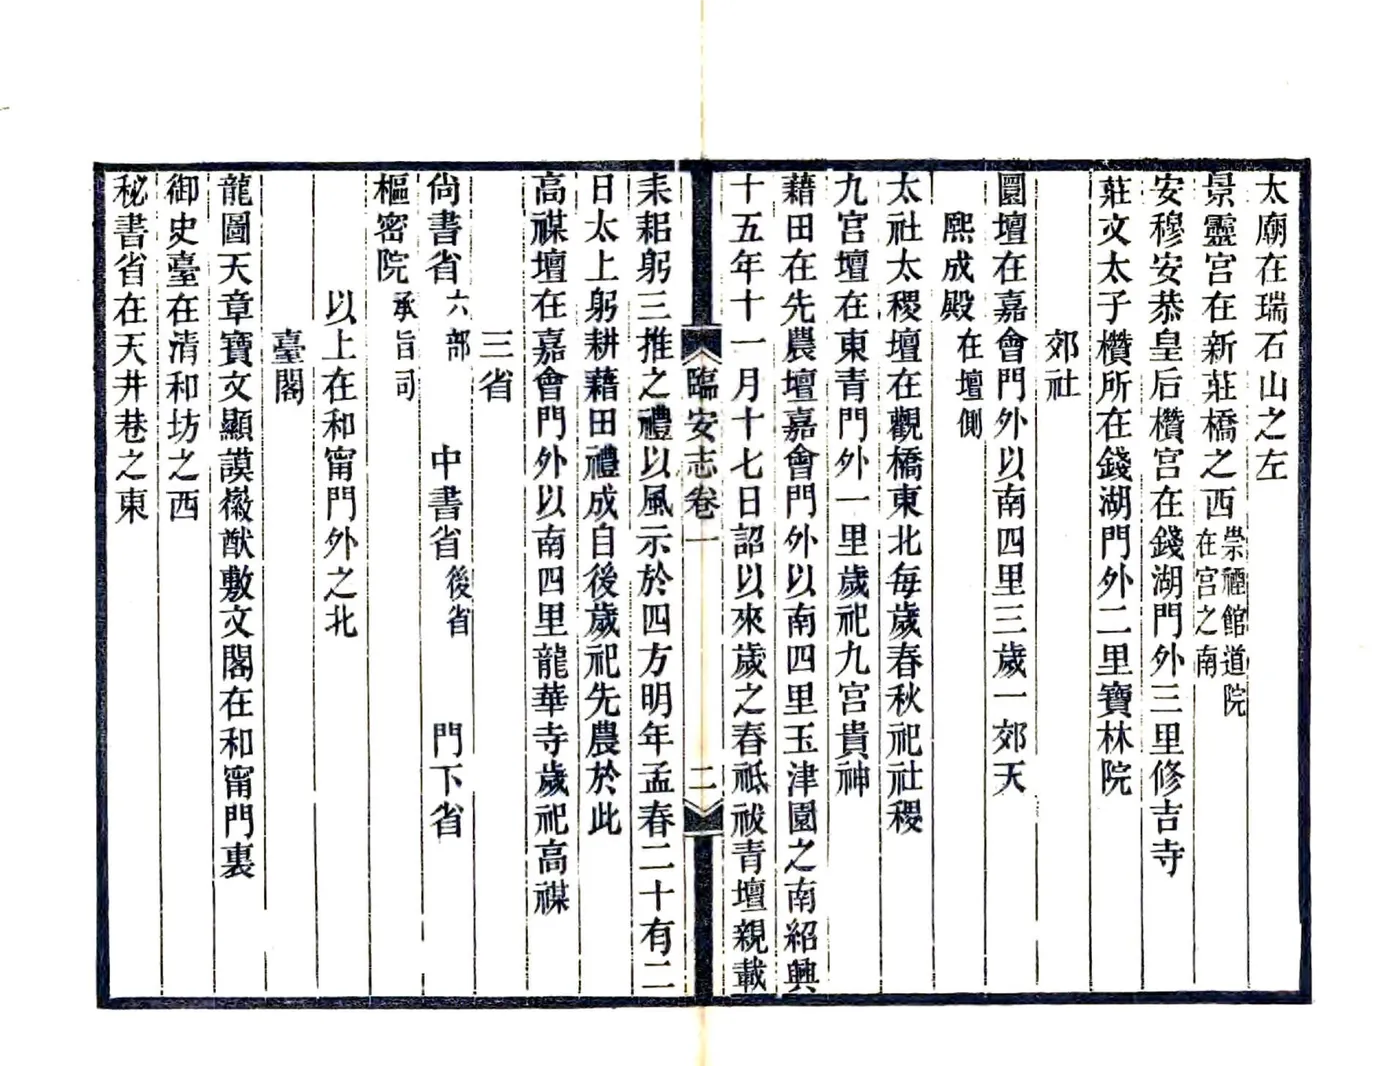 太廟在瑞石山之左
景靈宫在新莊橋之西崇禋館道院在宫之南
安穆安恭皇后欑宫在錢湖門外三里修吉寺
莊文太子欑所在錢湖門外二里寶林院
郊社
圜壇在嘉會門外以南四里三歲一郊天
熙成殿在壇側
太社太稷壇在觀橋東北每歲春秋祀社稷
九宫壇在東青門外一里歲祀九宫貴神
藉田在先農壇嘉會門外以南四里玉津園之南紹興
十五年十一月十七日詔以來歲之春祗祓青壇親載
臨安志卷一
二
耒耜躬三推之禮以風示於四方明年孟春二十有二
日太上躬耕藉田禮成自後歲祀先農於此
高禖壇在嘉會門外以南四里龍華寺歲祀高禖
三省
尙書省六部 中書省後省 門下省
樞密院承旨司
以上在和甯門外之北
臺閣
龍圖天章寶文顯謨徽猷敷文閣在和甯門裏
御史臺在清和坊之西
秘書省在天井巷之東